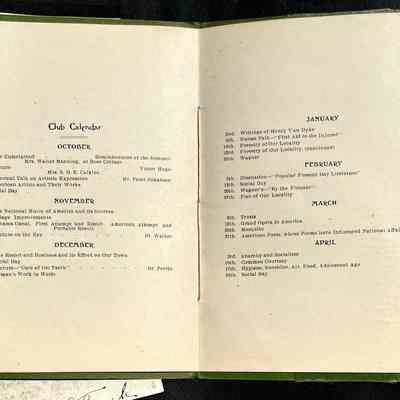 Club Calendar
OCTOBER
Entertained Reminiscences of the Summer
Mrs. Walter Manning, at Rose Cottage
Victor Hugo
Miss S. O. E. Calkins
Talk on Artistic Expression
Artists and Their Works
Day
NOVEMBER
National Music of America and its Sources
Improvements
Canal, First Attempt and Result American Attempt and
Probable Result
on the Eye Dr. Walker
DECEMBER
Resort and Business and its Effect on Our Town
Day
"Care of the Teeth" Dr. Peche
Work in Wards
JANUARY
2nd. Writings of Henry Van Dyke
9th. Nurses Talk—"First Aid to the Injured"
Forestry of Our Locality
Forestry of Our Locality, (continued)
Wagner
FEBRUARY
6th. Discussion—"Popular Present Day Literature"
13th. Social Day
20th. Wagner's—"By the Pioneer"
27th. Fish of Our Locality
MARCH
6th. Trusts
13th. Grand Opera in America
20th. Mosquito
27th. American Poets, whose Poems have Influenced National Affairs
APRIL
3rd. Anarchy and Socialism
10th. Common Courtesy
17th. Hygiene, Sunshine, Air, Food, Adolescent Age
24th. Social Day